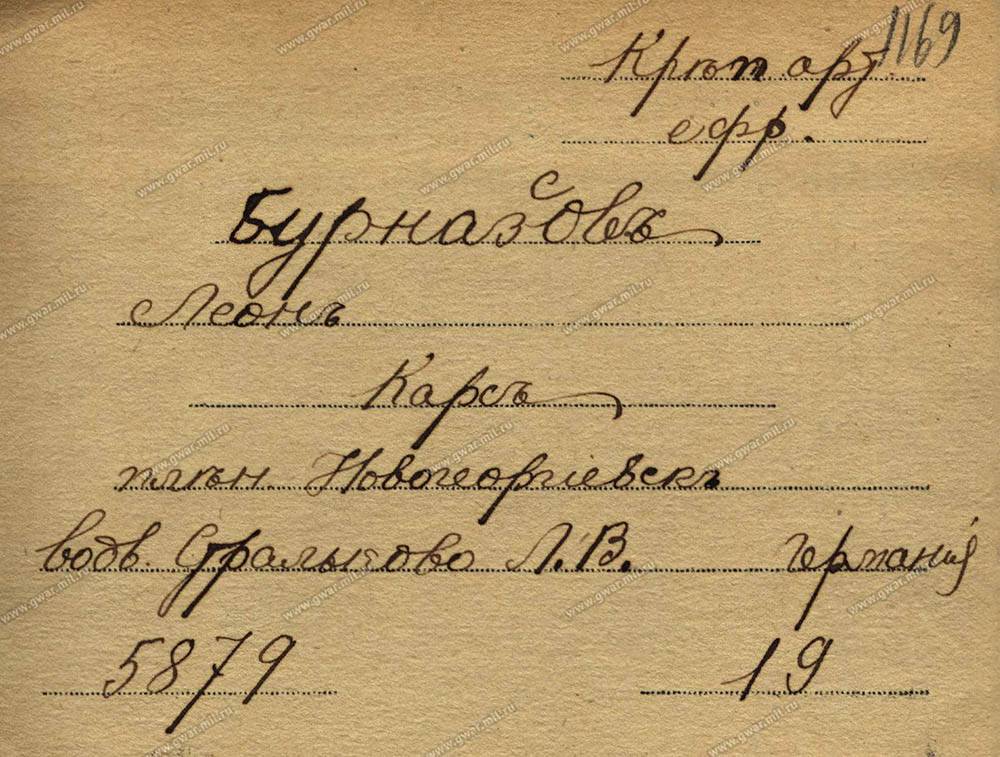 1169
Крѣп. арт.
ефр.
Бурназовъ
с
Леонъ
Карсъ
плѣн. Новогеоргіевскъ
водв. Стралково Л.В. Германія
5879 19
www.gwar.mil.ru